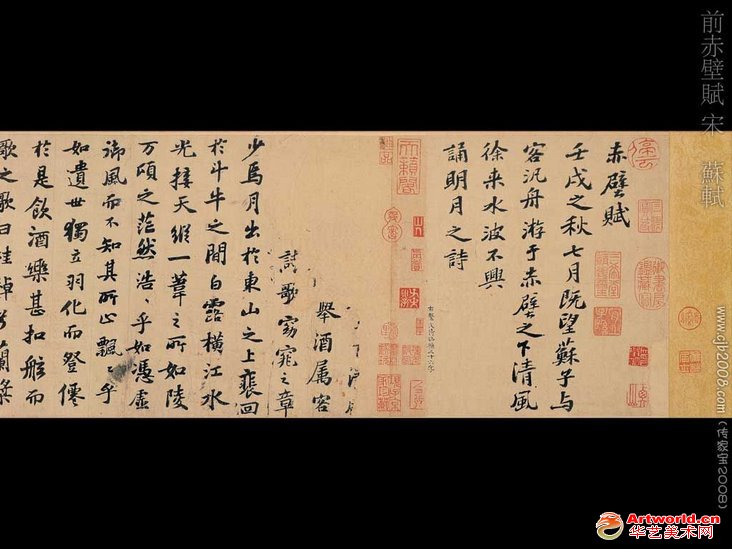 前赤壁賦 宋 蘇軾
www.cjb2008.com（传家宝2008）
赤壁賦
壬戌之秋七月既望蘇子与
客汎舟游于赤壁之下清風
徐来水波不興
誦明月之詩
舉酒属客
歌窈窕之章
少焉月出於東山之上裵回
於斗牛之間白露橫江水
光接天縱一葦之所如陵
万頃之茫然浩〻乎如憑虛
御風而不知其所止飄〻乎
如遺世獨立羽化而登僊
於是飲酒樂甚扣舷而
歌之歌曰桂棹兮蘭槳
Artworld.cn
华艺美术网